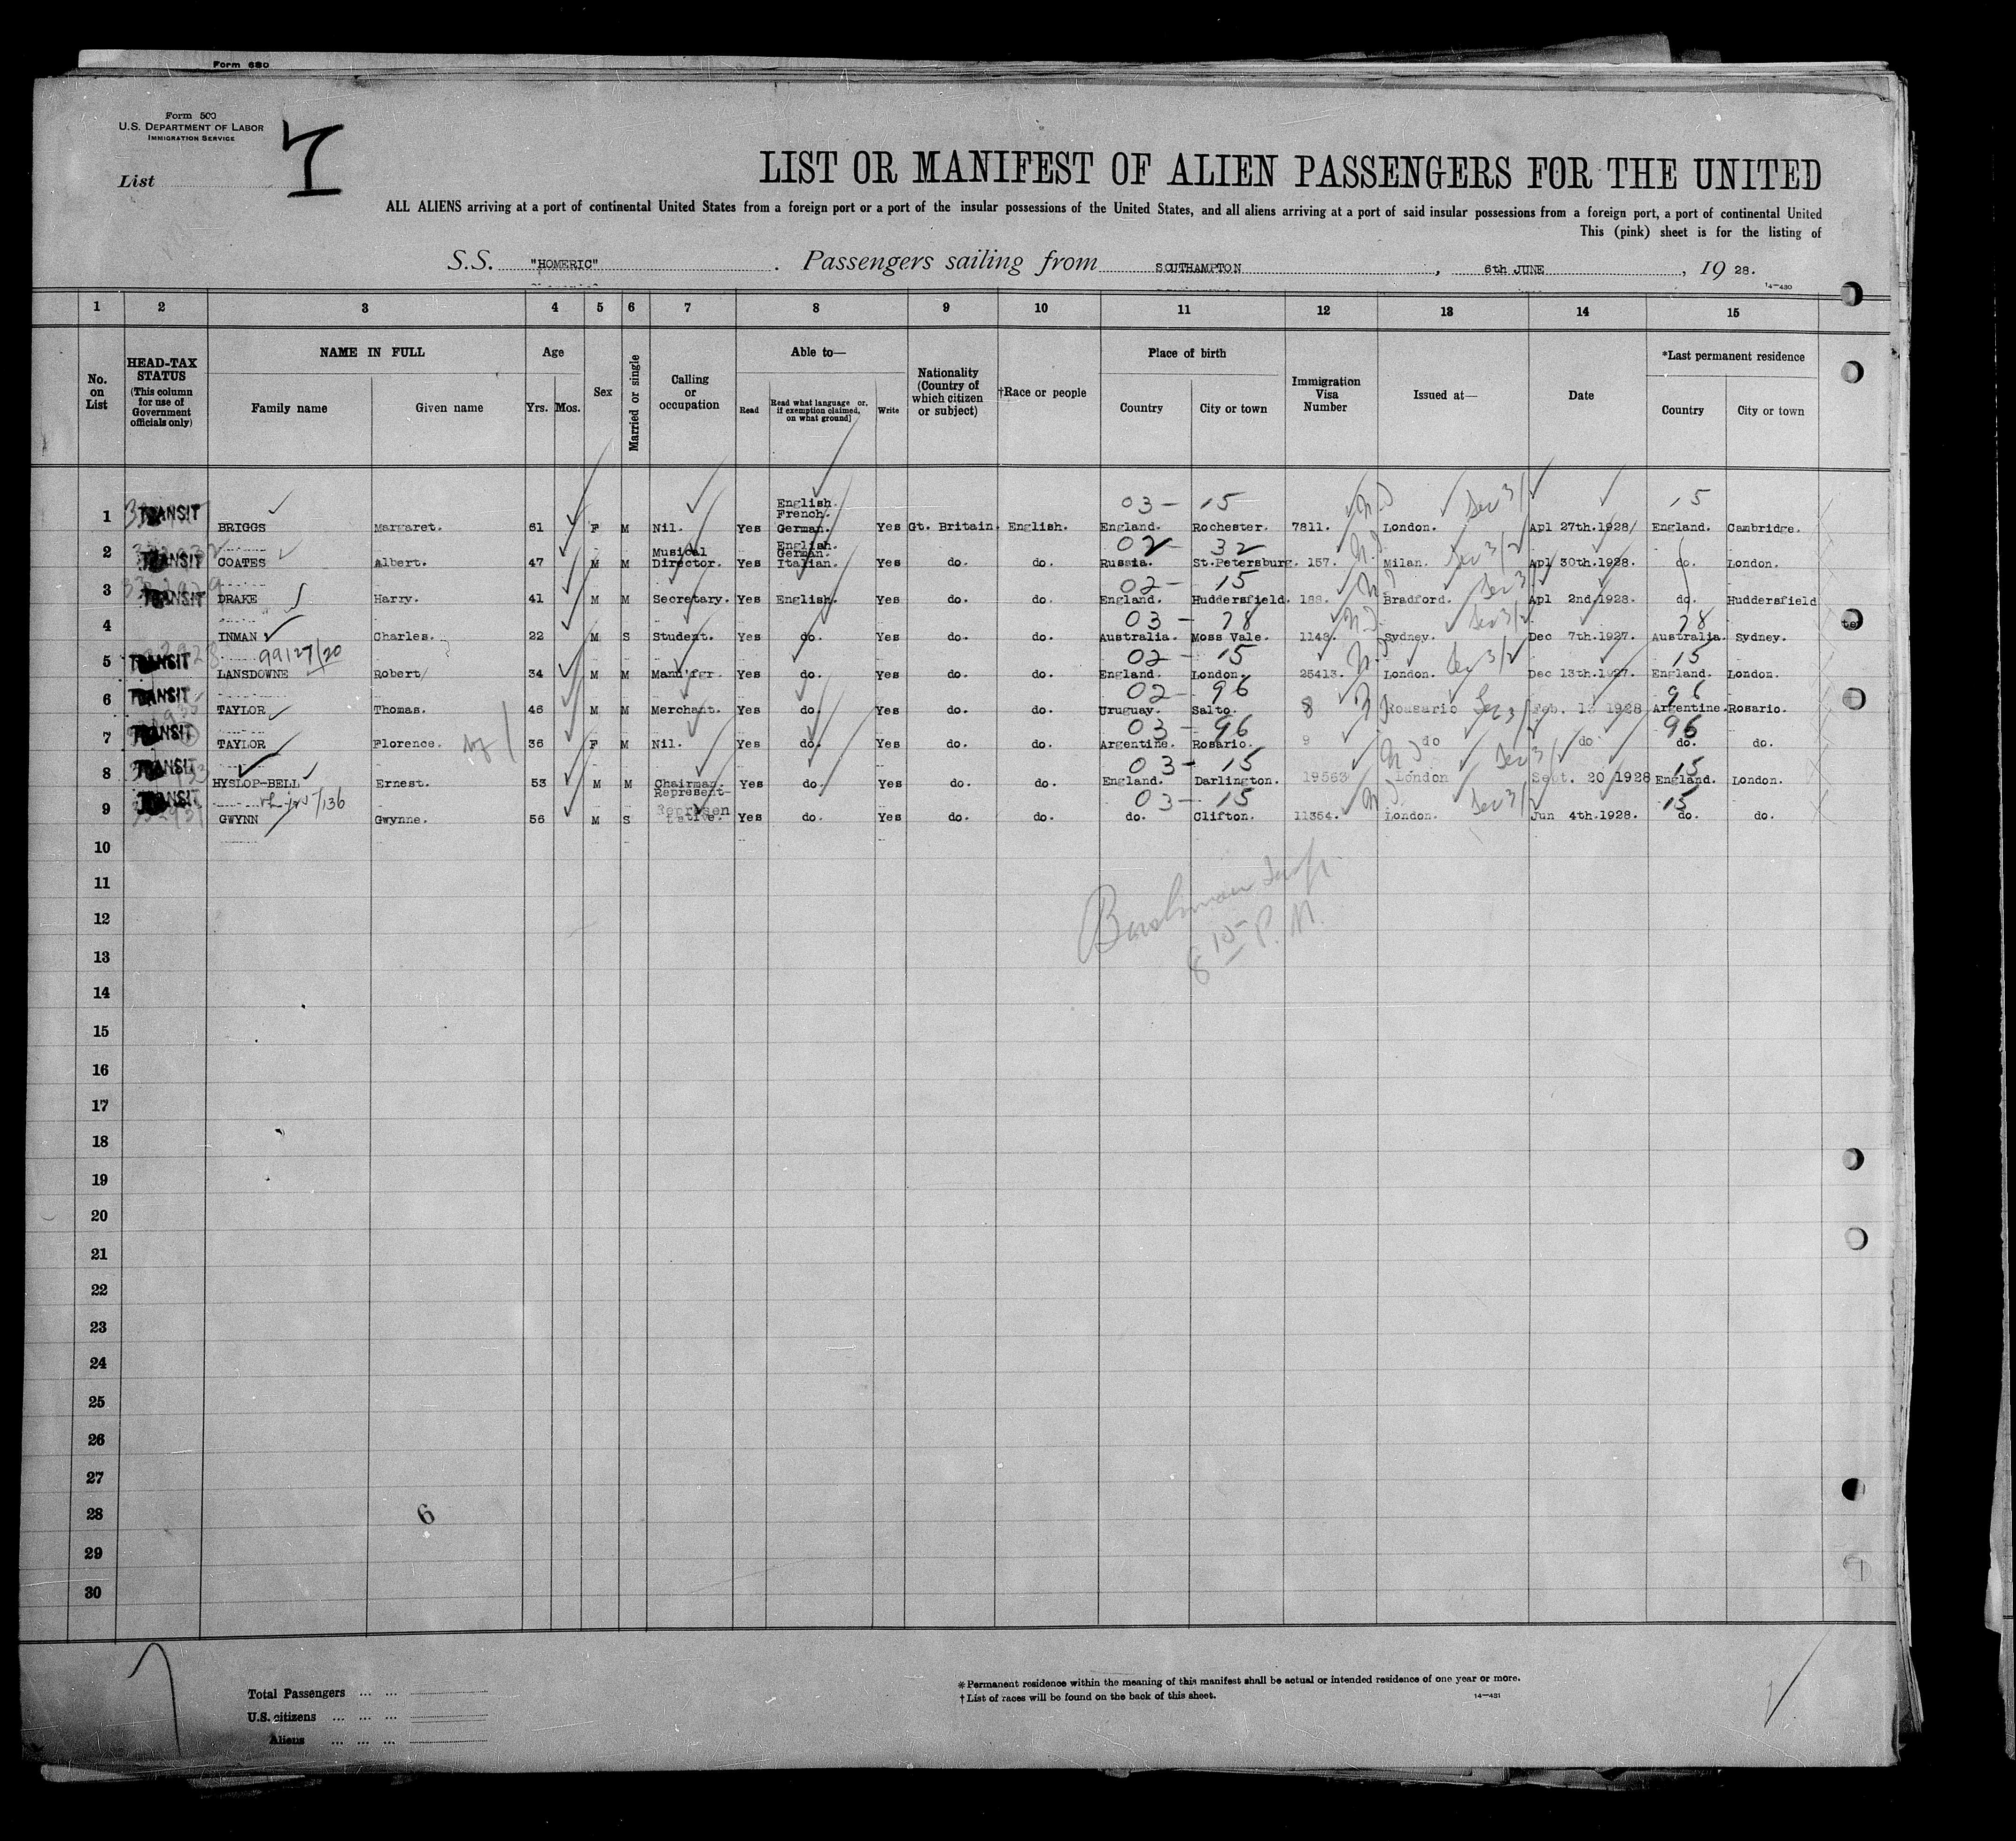 Form 680
Form 500
U.S. DEPARTMENT OF LABOR
IMMIGRATION SERVICE
List
LIST OR MANIFEST OF ALIEN PASSENGERS FOR THE UNITED
ALL ALIENS arriving at a port of continental United States from a foreign port or a port of the insular possessions of the United States, and all aliens arriving at a port of said insular possessions from a foreign port, a port of continental United
This (pink) sheet is for the listing of
S.S. "HOMERIC" . Passengers sailing from SOUTHAMPTON , 6th JUNE , 19 28.
14-430
1 2 3 4 5 6 7 8 9 10 11 12 13 14 15
No. on List HEAD-TAX STATUS (This column for use of Government officials only) NAME IN FULL Family name Given name Age Yrs. Mos. Sex Married or single Calling or occupation Able to— Read Read what language or, if exemption claimed, on what ground] Write Nationality (Country of which citizen or subject) †Race or people Place of birth Country City or town Immigration Visa Number Issued at— Date *Last permanent residence Country City or town
03 - 15 15
1 TRANSIT BRIGGS Margaret. 61 F M Nil. Yes English. French. German. Yes Gt. Britain. English. England. Rochester. 7811. London. Apl 27th.1928 England. Cambridge.
02 - 32
2 TRANSIT COATES Albert. 47 M M Musical Director. Yes English. German. Italian. Yes do. do. Russia. St.Petersburg. 157. Milan. Apl 30th.1928. do. London.
02 - 15
3 TRANSIT DRAKE Harry. 41 M M Secretary. Yes English. Yes do. do. England. Huddersfield. 188. Bradford. Apl 2nd.1928. do. Huddersfield
03 - 78 78
4 INMAN Charles. 22 M S Student. Yes do. Yes do. do. Australia. Moss Vale. 1148. Sydney. Dec 7th.1927. Australia. Sydney.
99127/20 02 - 15 15
5 TRANSIT LANSDOWNE Robert 34 M M Manu'fgr. Yes do. Yes do. do. England. London. 25413. London. Dec 13th.1927. England. London.
02 - 96 96
6 TRANSIT TAYLOR Thomas. 46 M M Merchant. Yes do. Yes do. do. Uruguay. Salto. 8 Rousario Feb. 13 1928 Argentine. Rosario.
03 - 96 96
7 TRANSIT TAYLOR Florence. 36 F M Nil. Yes do. Yes do. do. Argentine. Rosario. 9 do do do. do.
03 - 15 15
8 TRANSIT HYSLOP-BELL Ernest. 53 M M Chairman. Yes do. Yes do. do. England. Darlington. 19563 London Sept. 20 1928 England. London.
03 - 15 15
9 TRANSIT GWYNN Gwynne. 56 M S Represent- ative. Yes do. Yes do. do. do. Clifton. 11364. London. Jun 4th.1928. do. do.
10
11
12
8 15 P.M.
13
14
15
16
17
18
19
20
21
22
23
24
25
26
27
28 6
29
30
Total Passengers ... ...
U.S. citizens ... ... ...
Aliens ... ... ...
*Permanent residence within the meaning of this manifest shall be actual or intended residence of one year or more.
†List of races will be found on the back of this sheet.
14-431